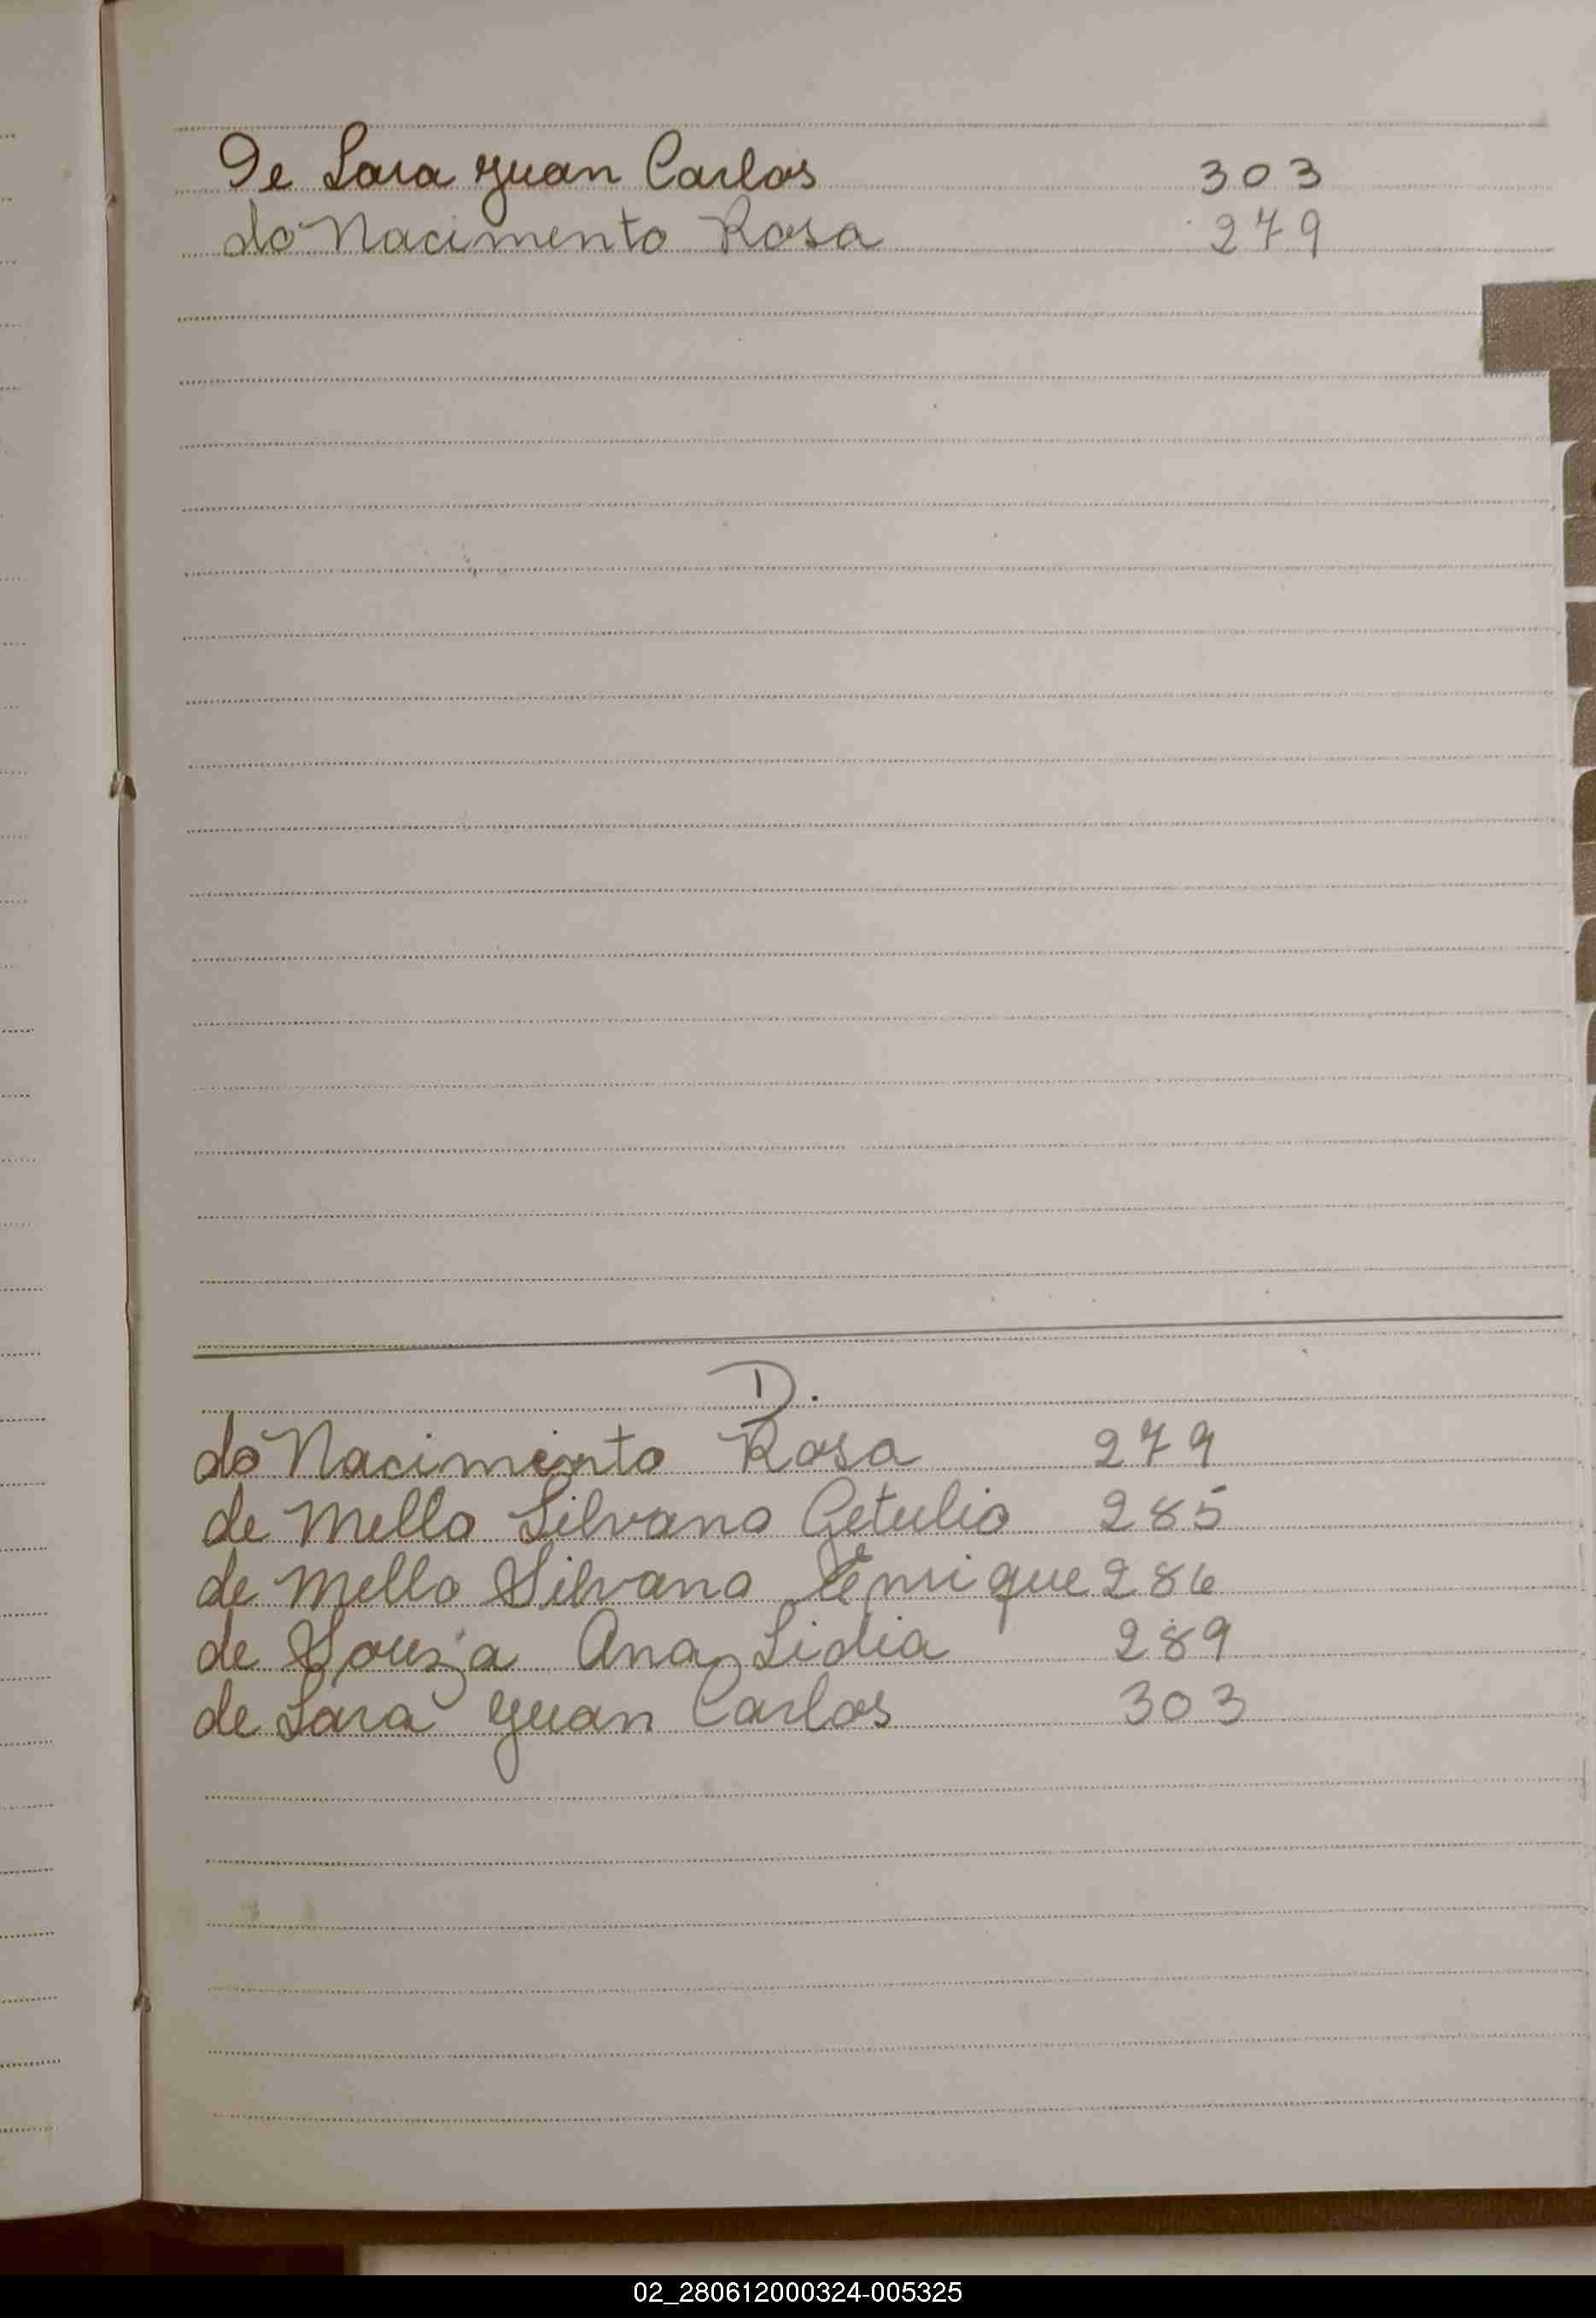 De Lara Juan Carlos 303
do Nacimento Rosa 279
D.
do Nacimento Rosa 279
de Mello Silvano Getulio 285
de Mello Silvano Enrique 286
de Souza Ana Lidia 289
de Lara Juan Carlos 303
02_280612000324-005325